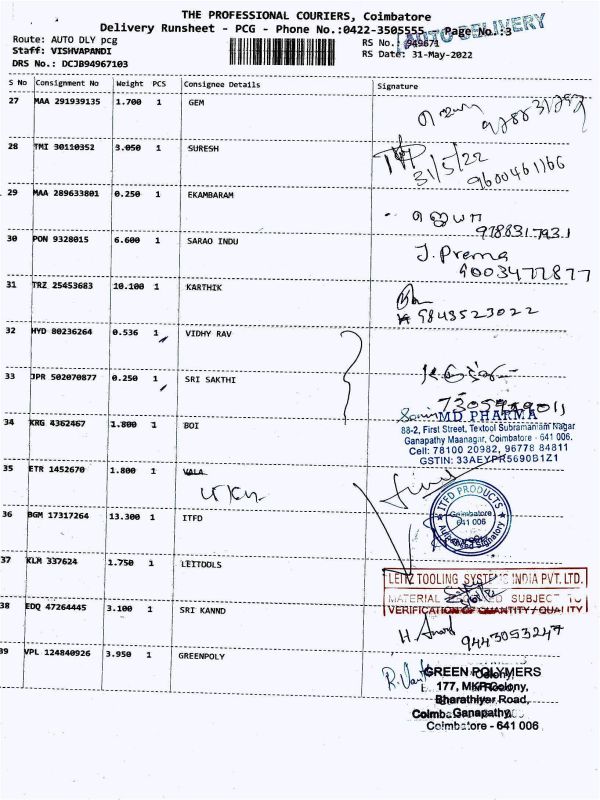 THE PROFESSIONAL COURIERS, Coimbatore
Delivery Runsheet - PCG - Phone No.:0422-3505555 Page No.:3
AUTO DELIVERY
Route: AUTO DLY pcg RS No.: 949671
Staff: VISHVAPANDI RS Date: 31-May-2022
DRS No.: DCJB94967103
S No Consignment No Weight PCS Consignee Details Signature
27 MAA 291939135 1.700 1 GEM
28 TMI 30110352 3.050 1 SURESH
31/5/22
9600461166
29 MAA 289633801 0.250 1 EKAMBARAM
ஜெயா
9788317931
30 PON 9328015 6.600 1 SARAO INDU
J. Prema
9003477877
31 TRZ 25453683 10.100 1 KARTHIK
9843523022
32 HYD 80236264 0.536 1 VIDHY RAV
33 JPR 502070877 0.250 1 SRI SAKTHI
34 KRG 4362467 1.800 1 BOI
MD PHARMA
88-2, First Street, Textool Subramaniam Nagar
Ganapathy Maanagar, Coimbatore - 641 006.
Cell: 78100 20982, 96778 84811
GSTIN: 33AEYPR5690B1Z1
35 ETR 1452670 1.800 1 VALA
36 BGM 17317264 13.300 1 ITFD
ITFD PRODUCTS
Coimbatore
641 006
Authorised Signatory
37 KLM 337624 1.750 1 LEITOOLS
LEITZ TOOLING SYSTEMS INDIA PVT. LTD.
MATERIAL SUBJECT TO
VERIFICATION OF QUANTITY/QUALITY
38 EDQ 47264445 3.100 1 SRI KANND
H. Anand 9443053247
39 VPL 124840926 3.950 1 GREENPOLY
GREEN POLYMERS
177, MKP Colony,
Bharathiyar Road,
Ganapathy,
Coimbatore - 641 006